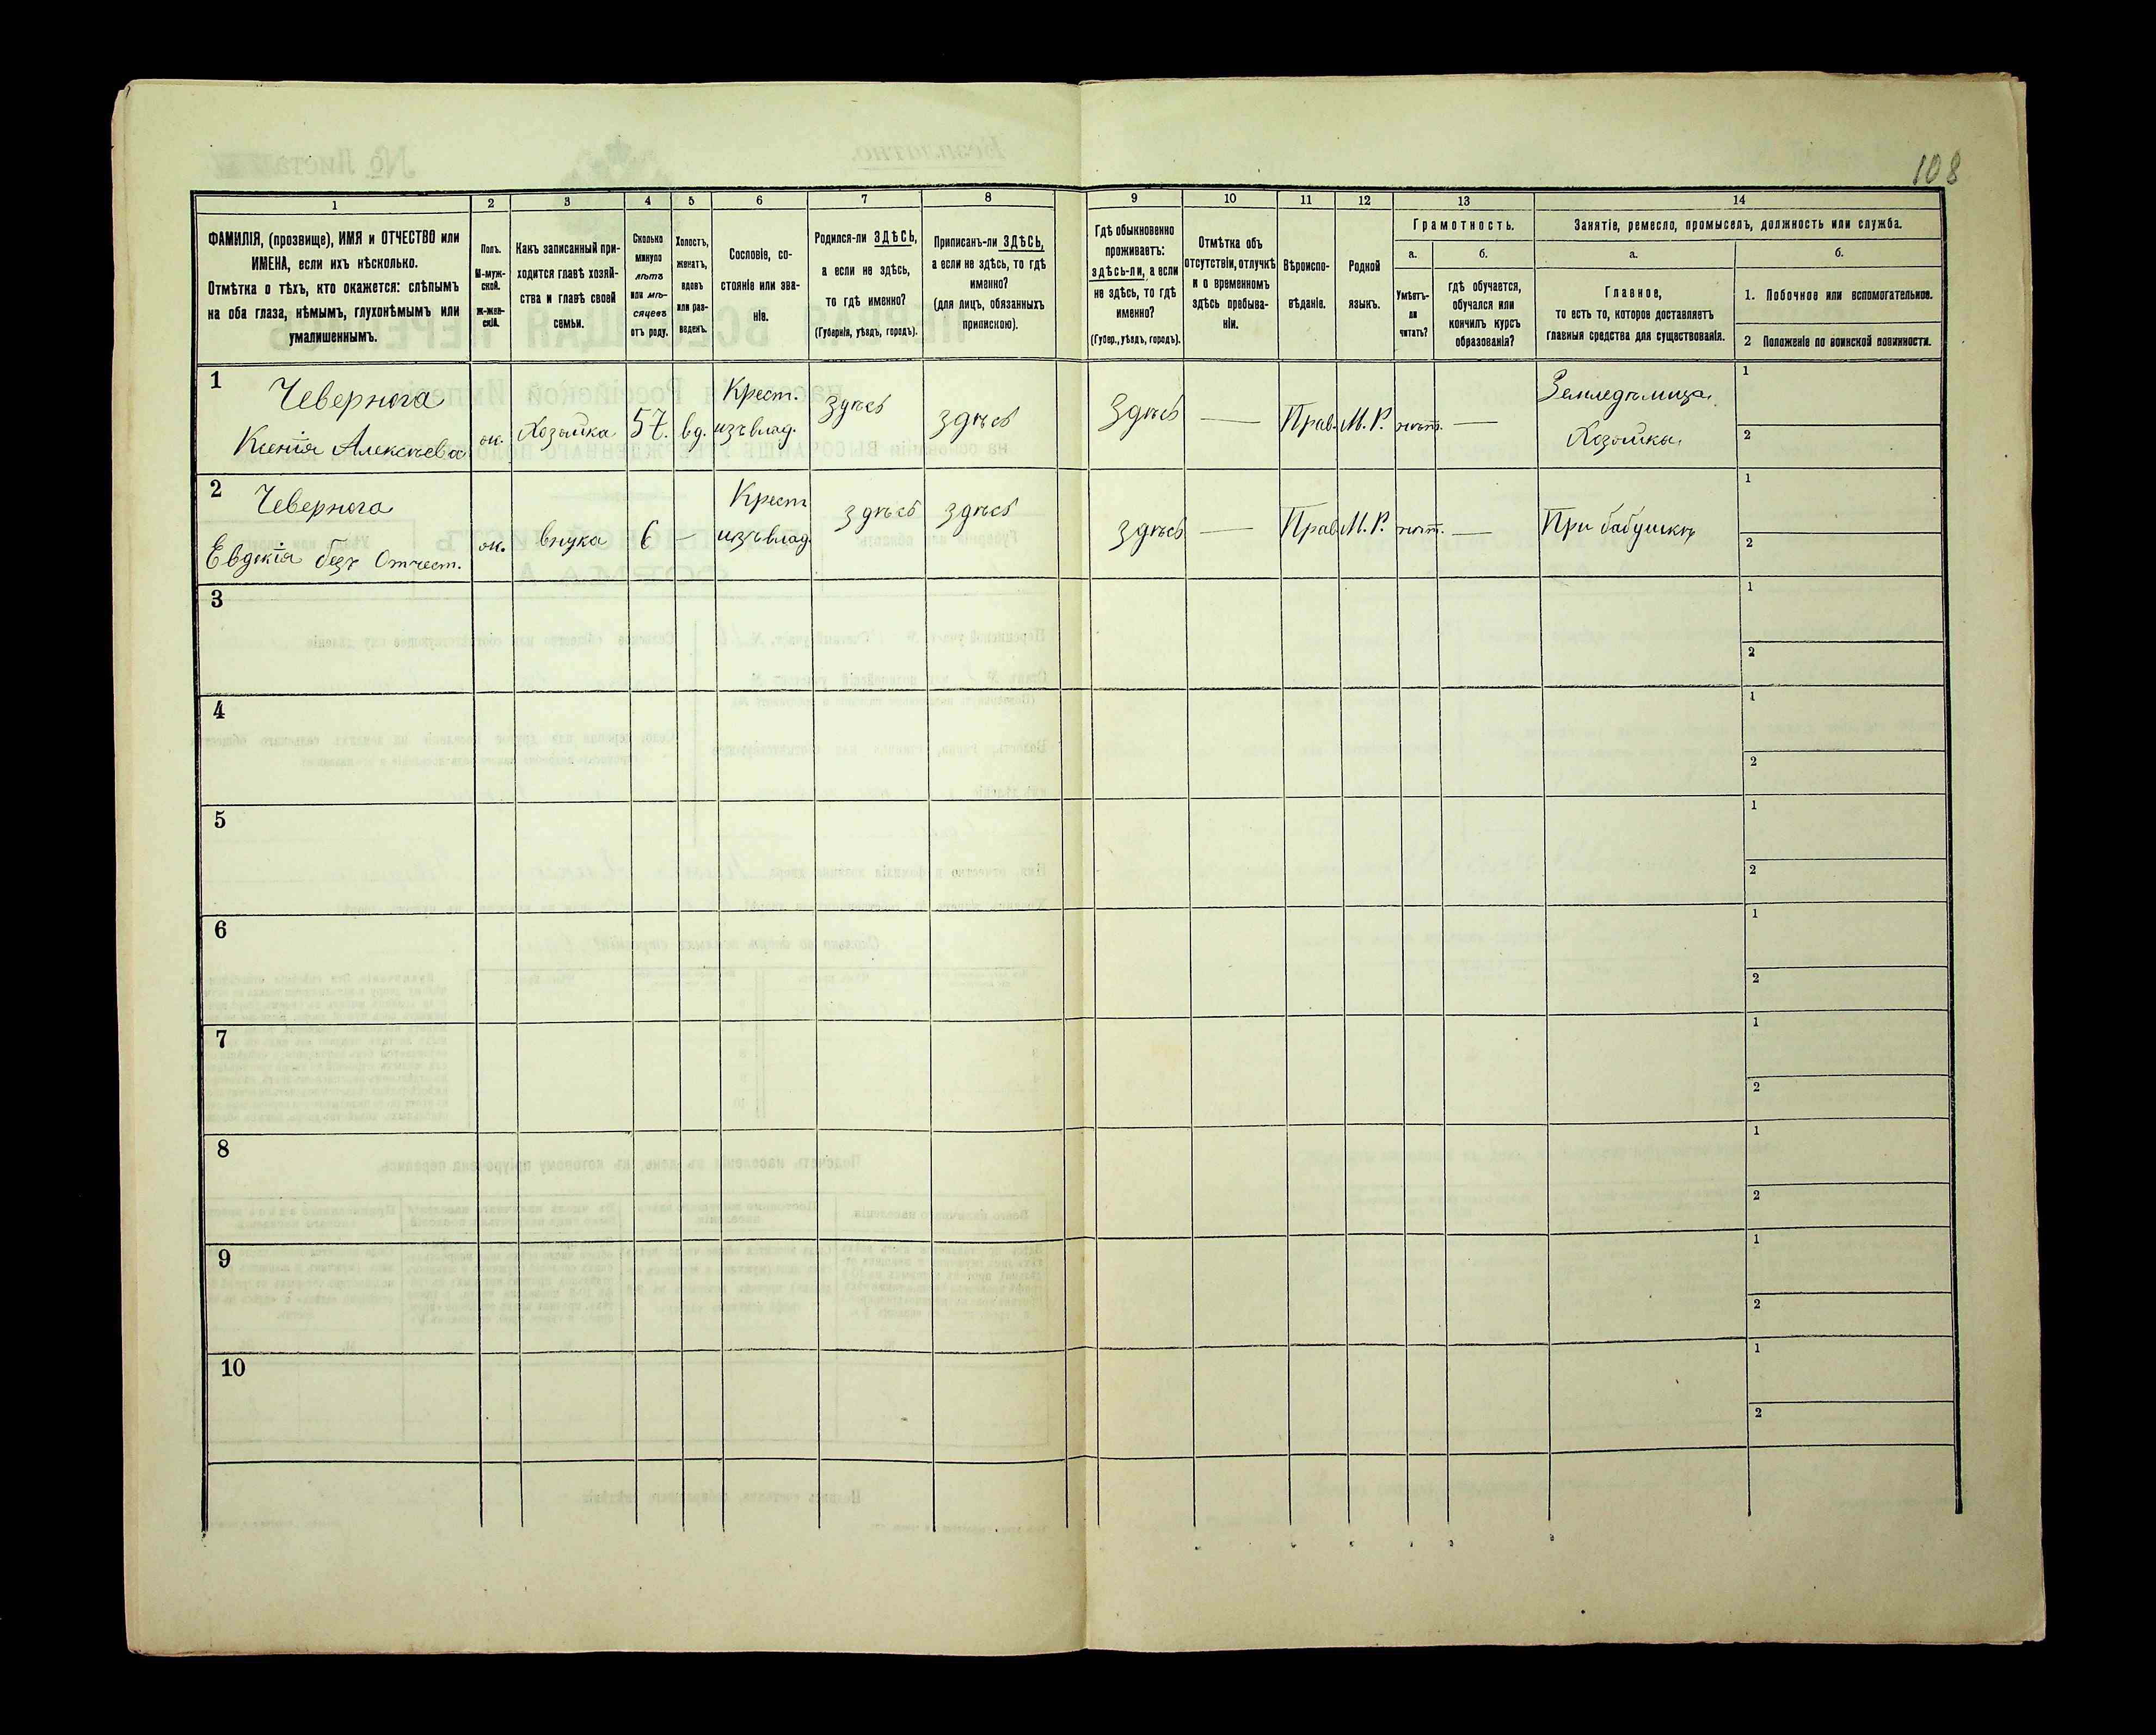 108
1
2
3
4
5
6
7
8
9
10
11
12
13
14
ФАМИЛІЯ, (прозвище), ИМЯ и ОТЧЕСТВО или
ИМЕНА, если ихъ нѣсколько.
Отмѣтка о тѣхъ, кто окажется: слѣпымъ
на оба глаза, нѣмымъ, глухонѣмымъ или
умалишеннымъ.
Полъ.
М-муж-
ской.
ж-жен-
скій.
Какъ записанный при-
ходится главѣ хозяй-
ства и главѣ своей
семьи.
Сколько
минуло
лѣтъ
или мѣ-
сяцевъ
отъ роду.
Холостъ,
женатъ,
вдовъ
или раз-
веденъ.
Сословіе, со-
стояніе или зва-
ніе.
Родился-ли ЗДѢСЬ,
а если не здѣсь,
то гдѣ именно?
(Губернія, уѣздъ, городъ).
Приписанъ-ли ЗДѢСЬ,
а если не здѣсь, то гдѣ
именно?
(для лицъ, обязанныхъ
припискою).
Гдѣ обыкновенно
проживаетъ:
здѣсь-ли, а если
не здѣсь, то гдѣ
именно?
(Губер., уѣздъ, городъ).
Отмѣтка объ
отсутствіи, отлучкѣ
и о временномъ
здѣсь пребыва-
ніи.
Вѣроиспо-
вѣданіе.
Родной
языкъ.
Грамотность.
а.
Умѣетъ-
ли
читать?
б.
гдѣ обучается,
обучался или
кончилъ курсъ
образованія?
Занятіе, ремесло, промыселъ, должность или служба.
а.
Главное,
то есть то, которое доставляетъ
главныя средства для существованія.
б.
1. Побочное или вспомогательное.
2 Положеніе по воинской повинности.
1
Чевернога
Ксенія Алексѣева
ж.
Хозяйка
57.
вд.
Крест.
изъ влад.
Здѣсь
здѣсь
Здѣсь
—
Прав.
М. Р.
нѣт.
—
Земледѣлица.
Хозяйка.
1
2
2
Чевернога
Евдокія безъ Отчест.
ж.
внука
6
—
Крест
изъ влад.
здѣсь
здѣсь
здѣсь
—
Прав.
М. Р.
нѣт.
—
При бабушкѣ
1
2
3
1
2
4
1
2
5
1
2
6
1
2
7
1
2
8
1
2
9
1
2
10
1
2